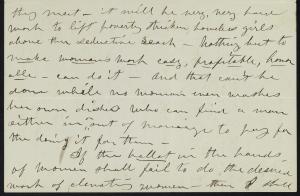 they meet - it will be very, very hard
work to lift poverty stricken homeless girls
above the seductive reach - Nothing but to
make woman's work easy, profitable, honor
able - can do it - And that can't be
done while no woman even washes
her own dishes who can find a man
either in, out of marriage to pay for
the doing it for them -
If the ballot in the hands
of women shall fail to do the desired
work of elevating women - then I shall